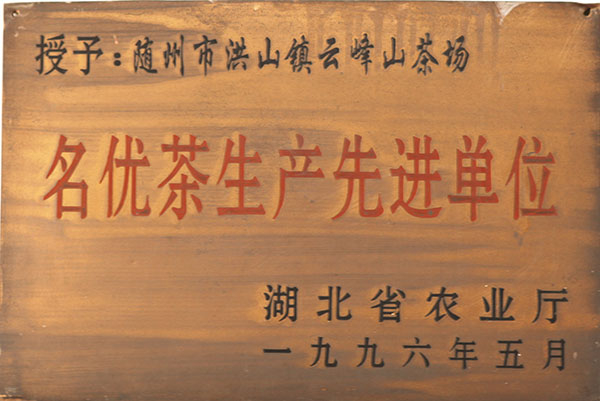 授予：随州市洪山镇云峰山茶场
名优茶生产先进单位
湖北省农业厅
一九九六年五月